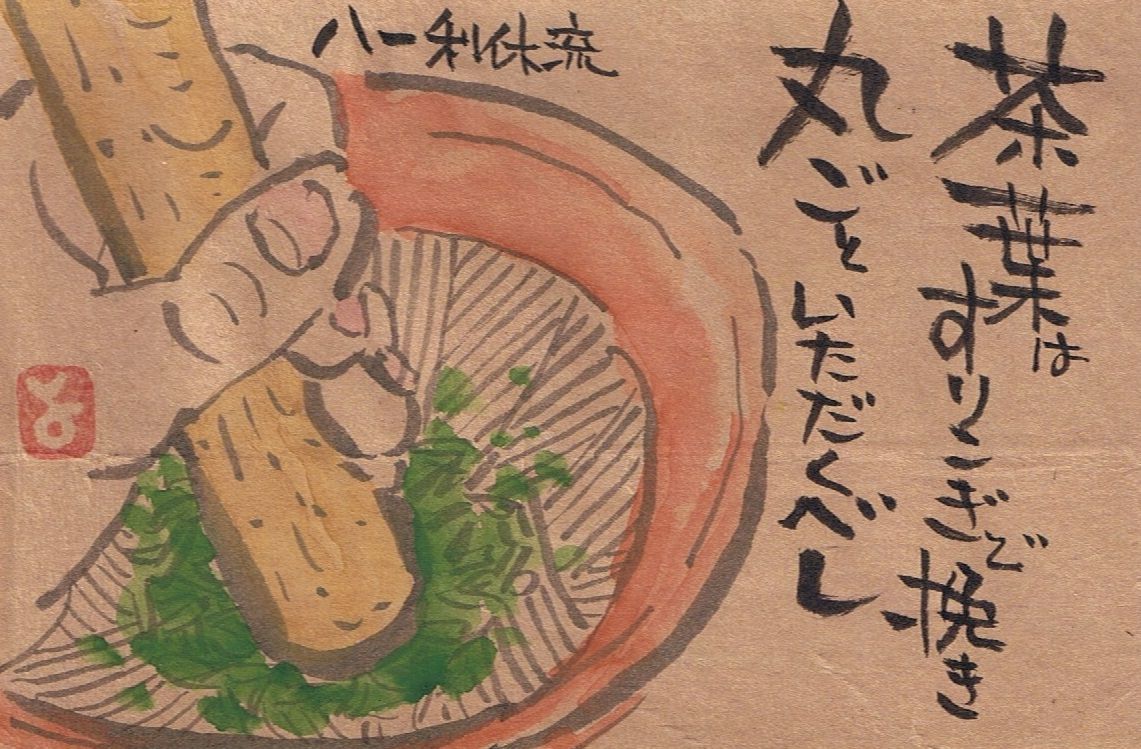 茶葉は
すりこぎで挽き
丸ごと
いただくべし
八一利休流
とよ